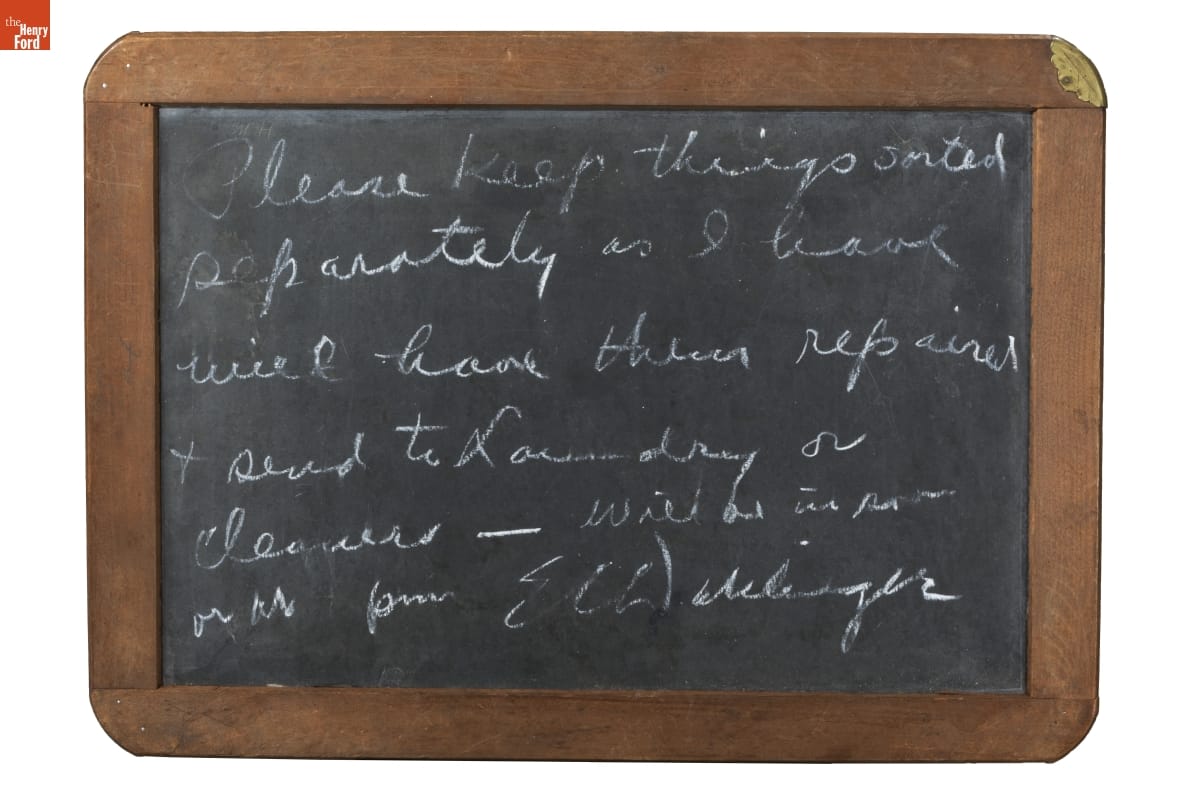 the
Henry
Ford
Please keep things sorted
separately as I have
will have them repaired
+ send to Laundry or
cleaners — will be in
or